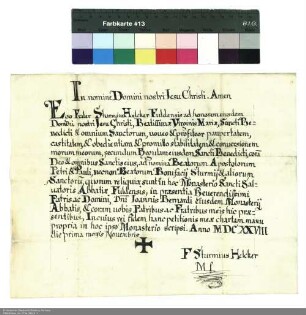 Farbkarte #13
In nomine Domini nostri Jesu Christi. Amen.
Ego Frater Sturmius Helcker Fuldensis ad honorem eiusdem
Domini nostri Jesu Christi, Beatissimæ Virginis Mariæ, Sancti Be-
nedicti & omnium Sanctorum, voveo & profiteor paupertatem,
castitatem, & obedientiam, & promitto stabilitatem & conversionem
morum meorum, secundum Regulam eiusdem Sancti Benedicti, coram
Deo & omnibus Sanctis eius, ad nomina Beatorum Apostolorum,
Petri & Pauli, Beatorum Bonifacij Sturmij & aliorum
Sanctorum, quorum reliquiæ sunt in hoc Monasterio Sancti Sal-
vatoris Abbatiæ Fuldensis, in præsentia Reverendissimi
Patris ac Domini, Dni Joannis Bernardi eiusdem Monasterij
Abbatis, & coram vobis Patribus ac Fratribus meis hic præ-
sentibus. In cuius rei fidem hanc petitionis meæ chartam manu
propria in hoc ipso Monasterio scripsi. Anno MDCXXVIII
die prima mensis Novembris.
F. Sturmius Helcker